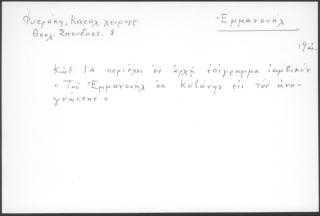 Φυτράκη, Καταλ χειρογρ
Θεολ. Σπουδαστ. 8
Ἐμμανουήλ
19
Κῶδ. 12 περιέχει ἐν ἀρχῇ ἐπίγραμμα ἰαμβικόν
"Τοῦ Ἐμμανουήλ ἐκ Κοζάνης εἰς τὸν ἀνα-
γνώστην"